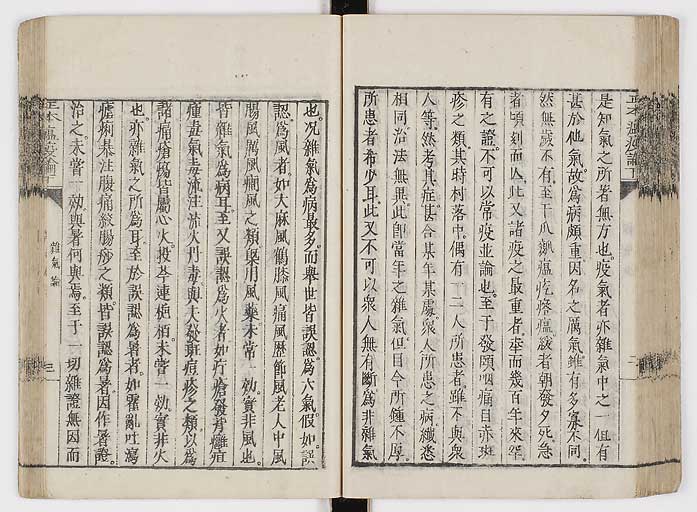 是知氣之所著無方也。疫氣者亦雜氣中之一。但有
甚於他氣。故爲病頗重。因名之厲氣。雖有多寡不同。
然無歲不有。至于瓜瓤瘟疙瘩瘟緩者朝發夕死。急
者頃刻而亡。此又諸疫之最重者。幸而幾百年來罕
有之證。不可以常疫並論也。至于發頤咽痛目赤斑
疹之類。其時村落中。偶有一二人所患者。雖不與衆
人等。然考其症。甚合某年某處。衆人所患之病。纖悉
相同。治法無異。此卽當年之雜氣。但目今所鍾不厚。
所患者希少耳。此又不可以衆人無有斷爲非雜氣
也。况雜氣爲病最多。而舉世皆誤認爲六氣。假如誤
認爲風者。如大麻風鶴膝風痛風歷節風老人中風
腸風厲風癇風之類。槩用風藥。未常一効。實非風也。
皆雜氣爲病耳。至又誤認爲火者。如疔瘡發背癰疽
腫毒氣毒流注流火丹毒。與夫發斑痘疹之類。以爲
諸痛瘡瘍皆屬心火。投芩連梔栢。未嘗一効。實非火
也。亦雜氣之所爲耳。至於誤認爲暑者。如霍亂吐瀉
瘧痢暴注腹痛絞腸痧之類。皆誤認爲暑。因作暑證
治之。未嘗一効。與暑何與焉。至于一切雜證無因而
雜氣論
三